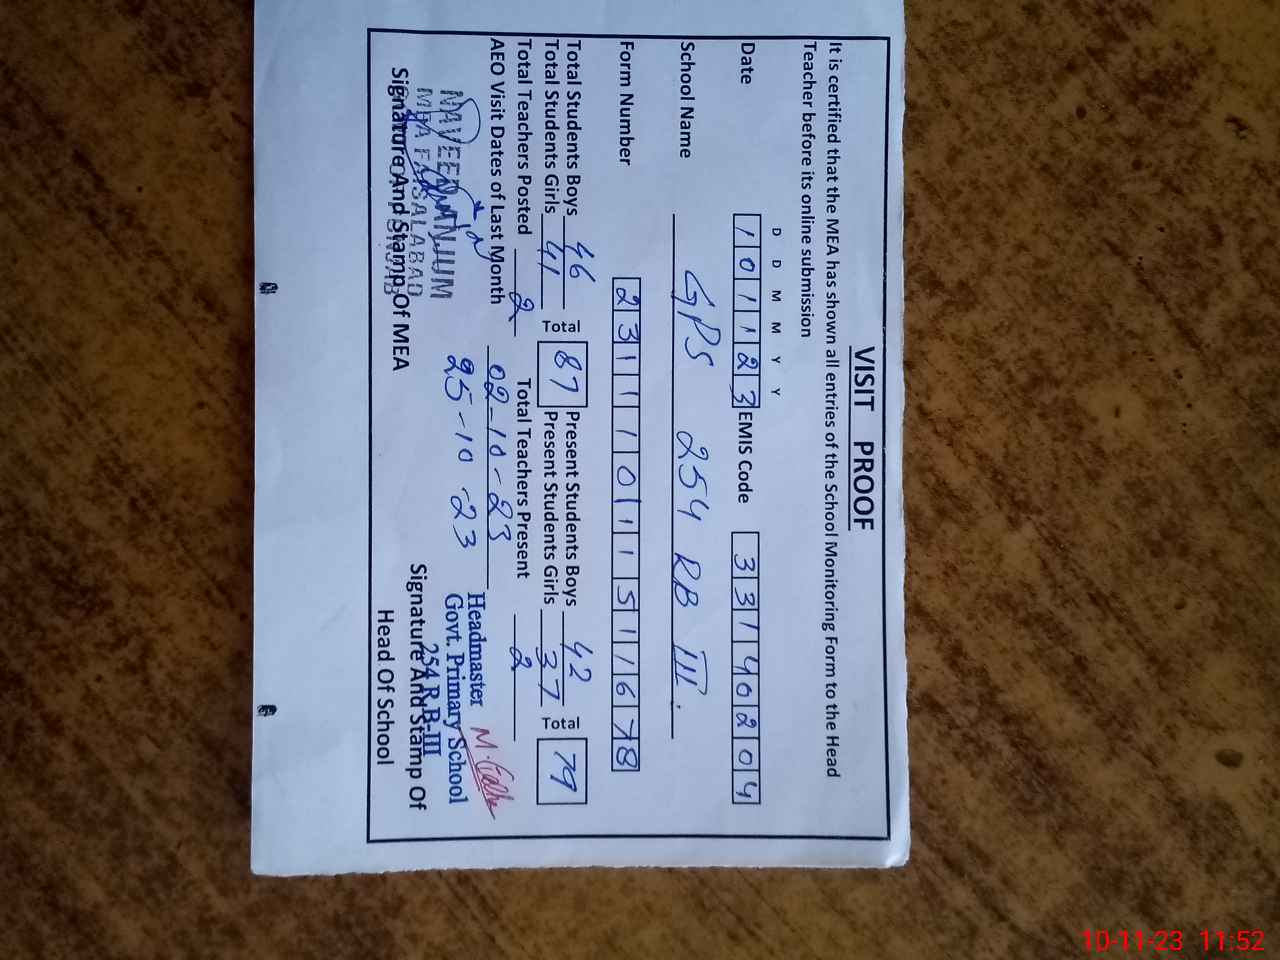 VISIT PROOF
It is certified that the MEA has shown all entries of the School Monitoring Form to the Head
Teacher before its online submission
D D M M Y Y
Date 101123 EMIS Code 33140204
School Name GPS 254 RB III.
Form Number 23111011511678
Total Students Boys 46 Total 87 Present Students Boys 42 Total 79
Total Students Girls 41 Present Students Girls 37
Total Teachers Posted 2 Total Teachers Present 2
AEO Visit Dates of Last Month 02-10-23
25-10-23
NAVEED ANJUM
MEA FAISALABAD
Signature And Stamp Of MEA
Headmaster
Govt. Primary School
254 R.B-III
Signature And Stamp Of
Head Of School
10-11-23 11:52